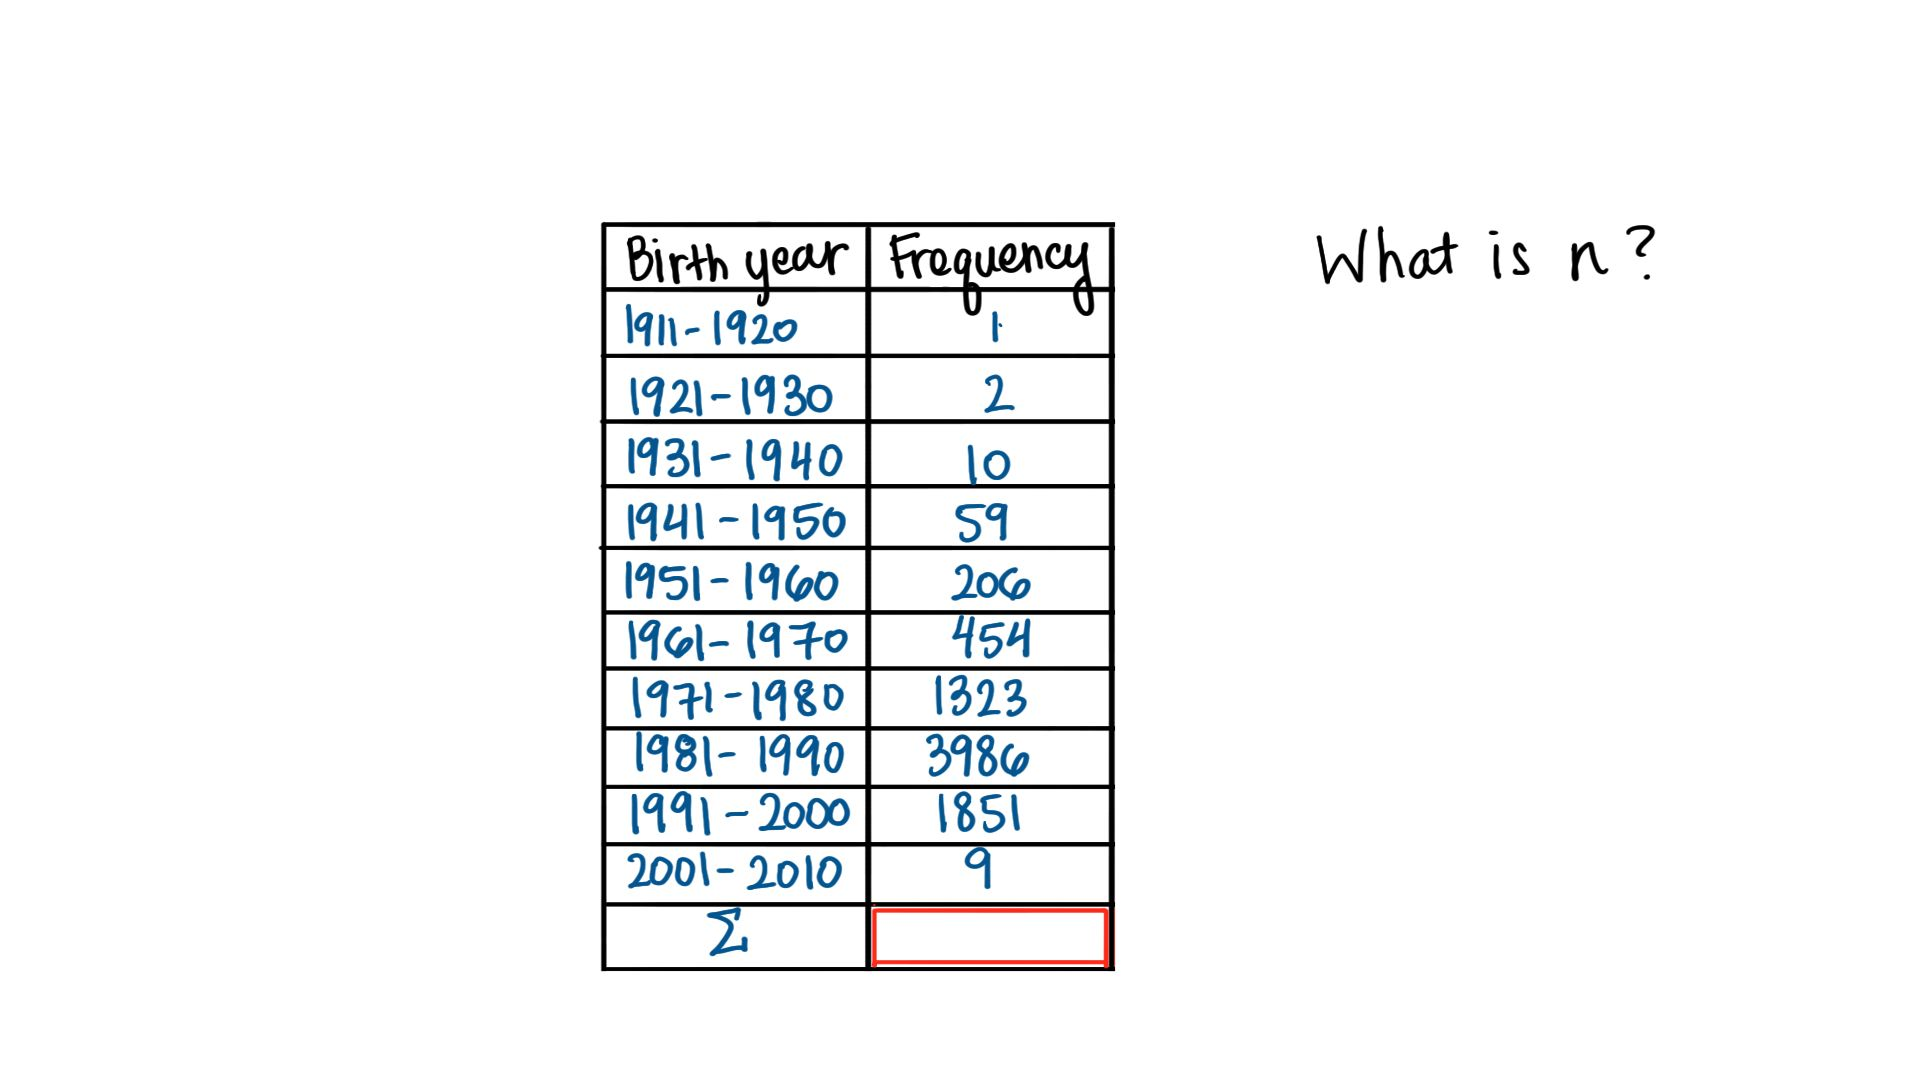 Birth year Frequency
1911-1920 1
1921-1930 2
1931-1940 10
1941-1950 59
1951-1960 206
1961-1970 454
1971-1980 1323
1981-1990 3986
1991-2000 1851
2001-2010 9
Σ
What is n?